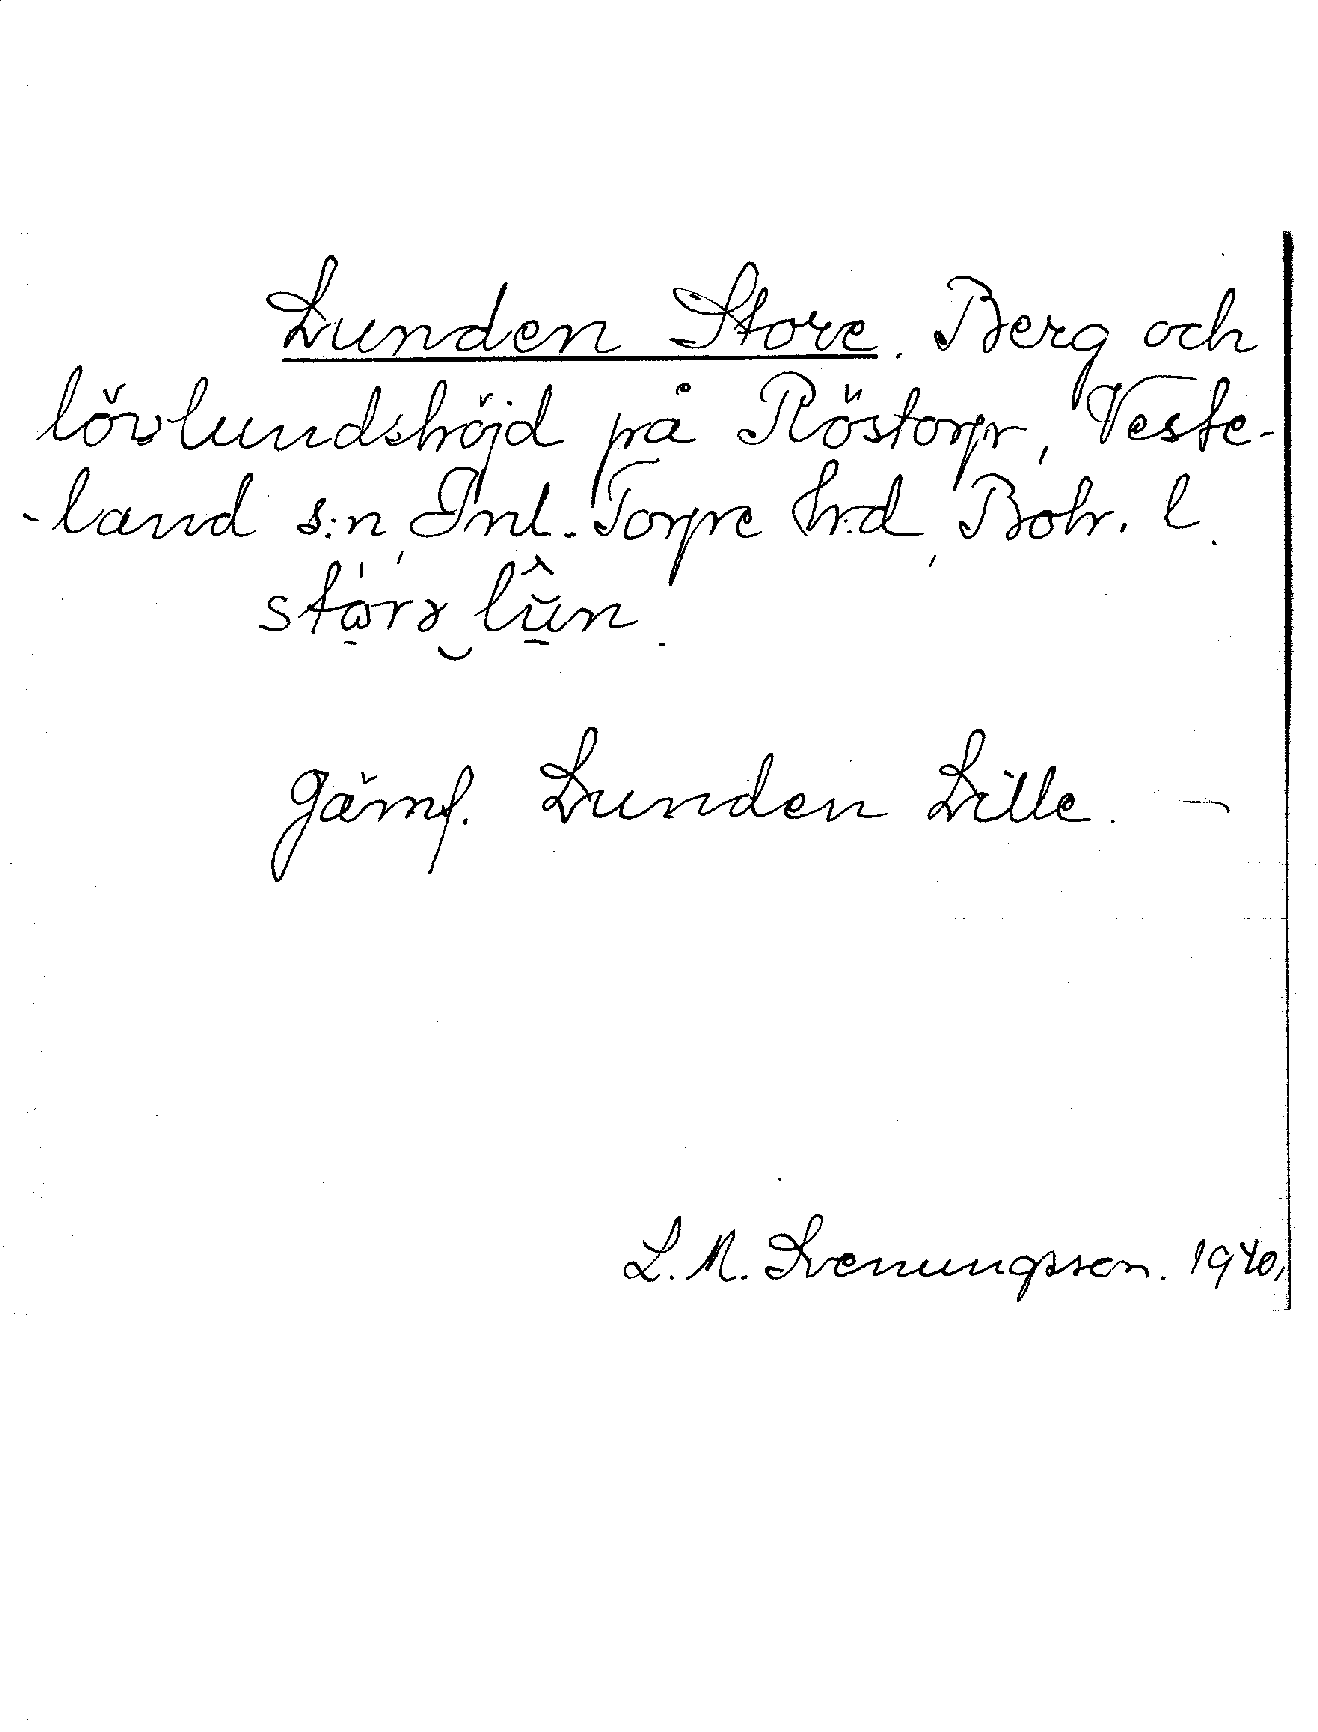 Lunden Store. Berg och
lövlundshöjd på Röstorp, Veste-
-land s:n, Inl. Torpe hrd, Bohr. l.
Jämf. Lunden Lille. —
L. M. Svenungsson. 1940.